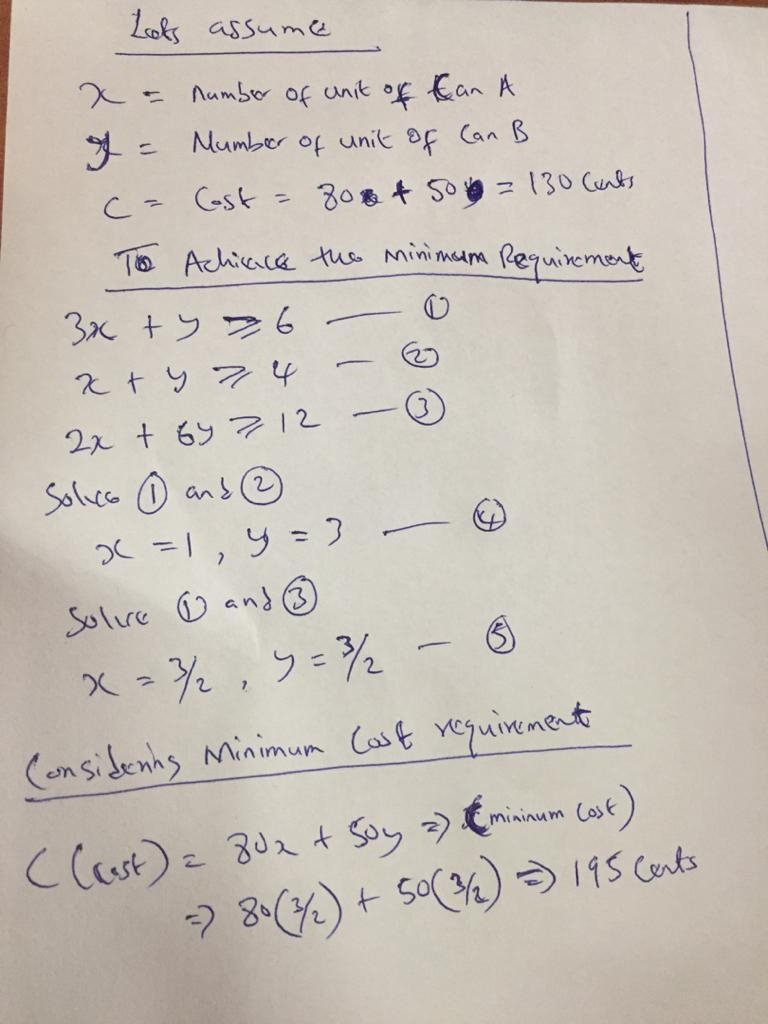 Lets assume
x = number of unit of Can A
y = Number of unit of Can B
C = Cost = 80 + 50 = 130 Cents
To Achieve the minimum Requirement
3x + y ⩾ 6 — ①
x + y ⩾ 4 — ②
2x + 6y ⩾ 12 — ③
Solve ① and ②
x = 1, y = 3 — ④
Solve ① and ③
x = 3/2, y = 3/2 — ⑤
Considering Minimum Cost requirement
C (Cost) = 80x + 50y => (mininum Cost)
=> 80(3/2) + 50(3/2) => 195 Cents